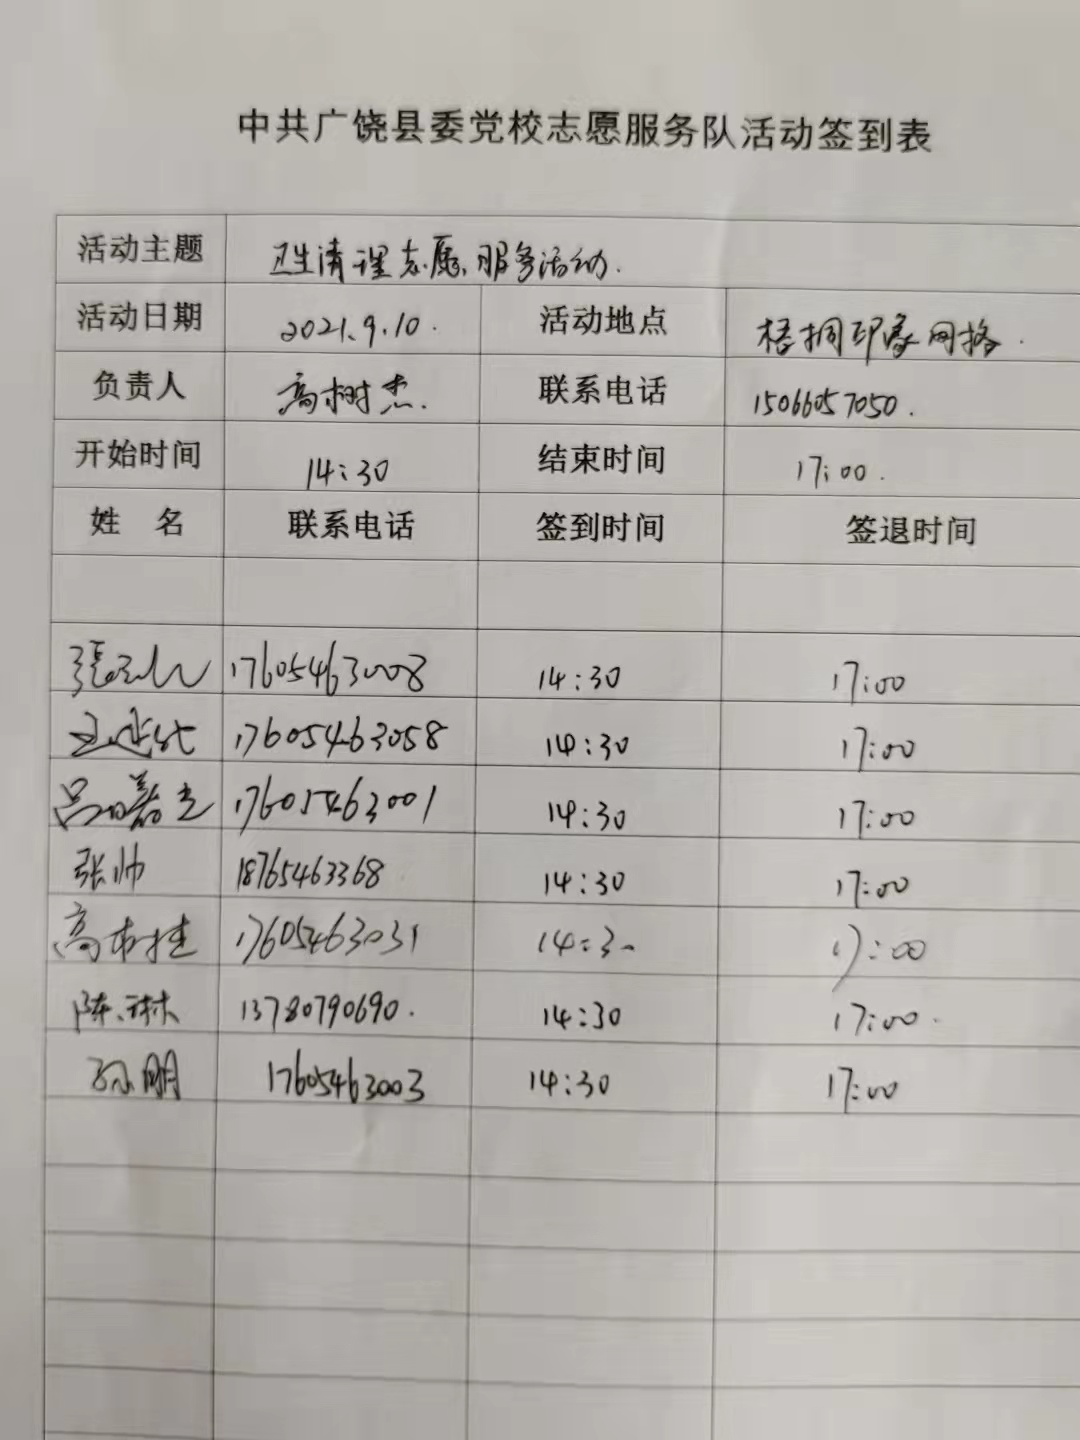 中共广饶县委党校志愿服务队活动签到表
活动主题 卫生清理志愿服务活动.
活动日期 2021.9.10. 活动地点 梧桐印象网格.
负责人 高树杰. 联系电话 15066057050.
开始时间 14:30 结束时间 17:00.
姓 名 联系电话 签到时间 签退时间
17605463008 14:30 17:00
17605463058 14:30 17:00
17605463001 14:30 17:00
张帅 18765463368 14:30 17:00
17605463031 14:30 17:00
陈琳 13780790690. 14:30 17:00.
孙明 17605463003 14:30 17:00